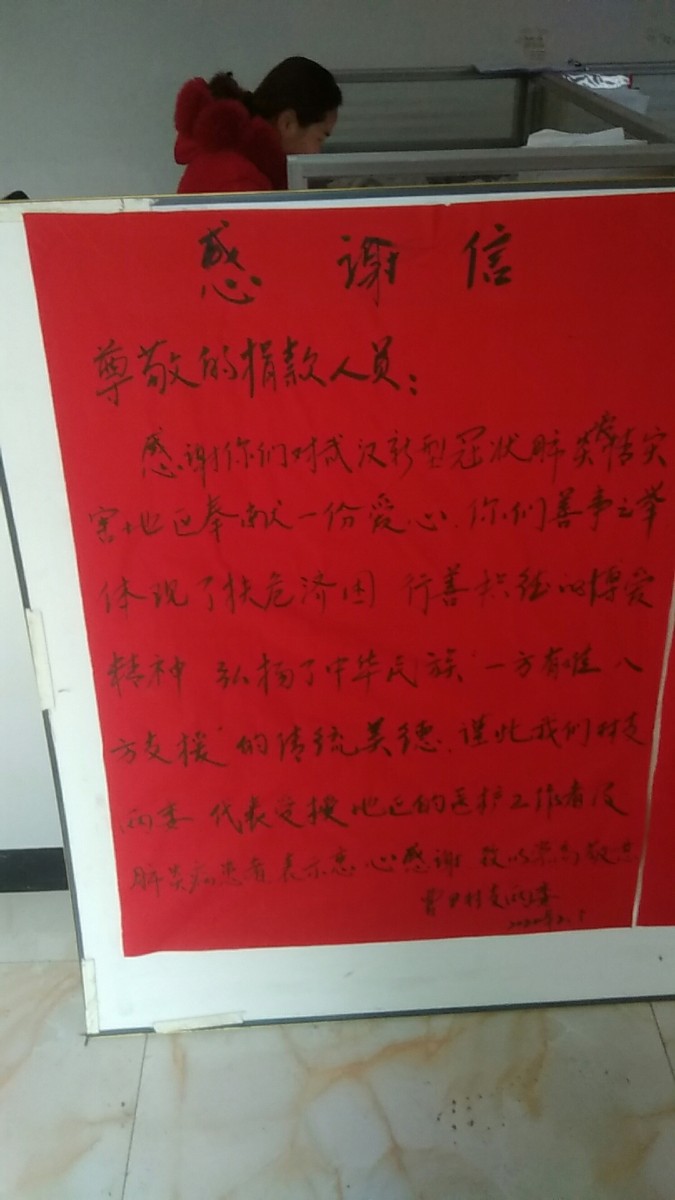 感谢信
尊敬的捐款人员：
感谢你们对武汉新型冠状肺炎疫情灾
害地区奉献一份爱心、你们善事之举
体现了扶危济困 行善积德的博爱
精神 弘扬了中华民族“一方有难 八
方支援”的传统美德、谨此我们村支
两委 代表受援地区的医护工作者及
肺炎病患者、表示衷心感谢 致以崇高敬意
村支两委
2020年2.5